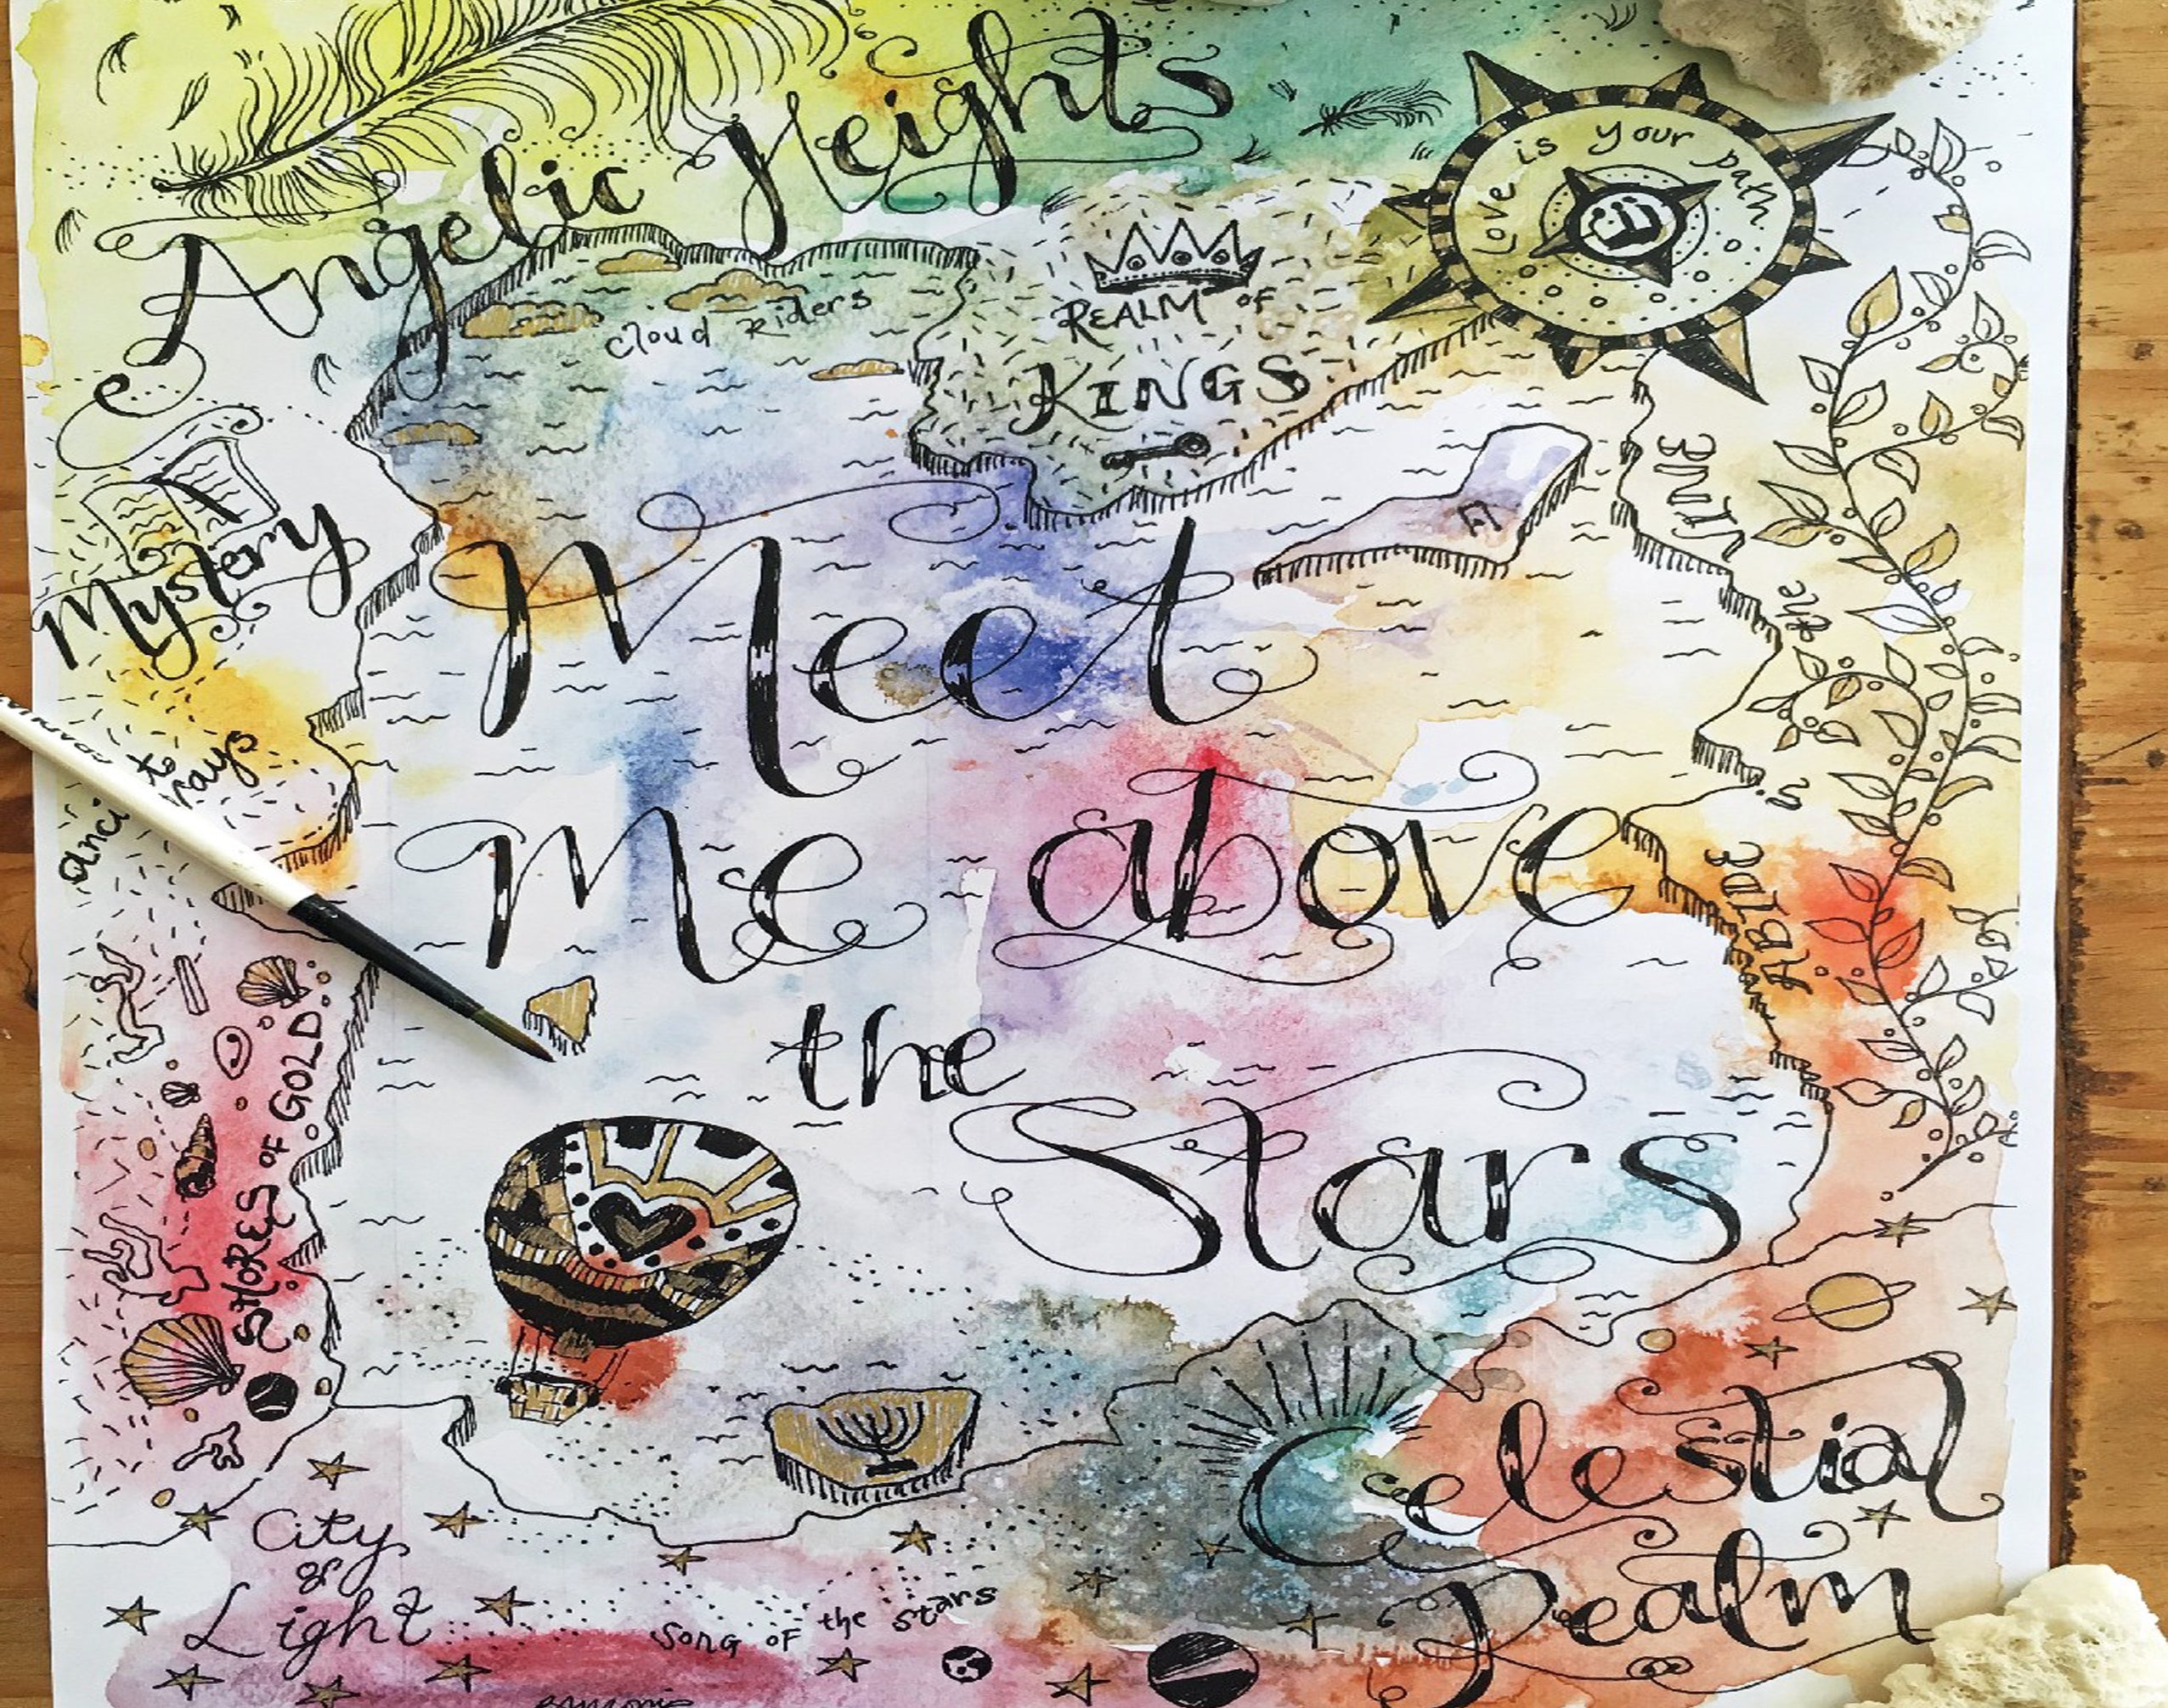 Angelic Heights
Love is your path
Cloud Riders
REALM OF
KINGS
Mystery
Meet
Me above
the
Stars
ABIDE
in
the
VINE
SHORES OF GOLD
City
of
Light
Song OF the Stars
Celestial
Realm